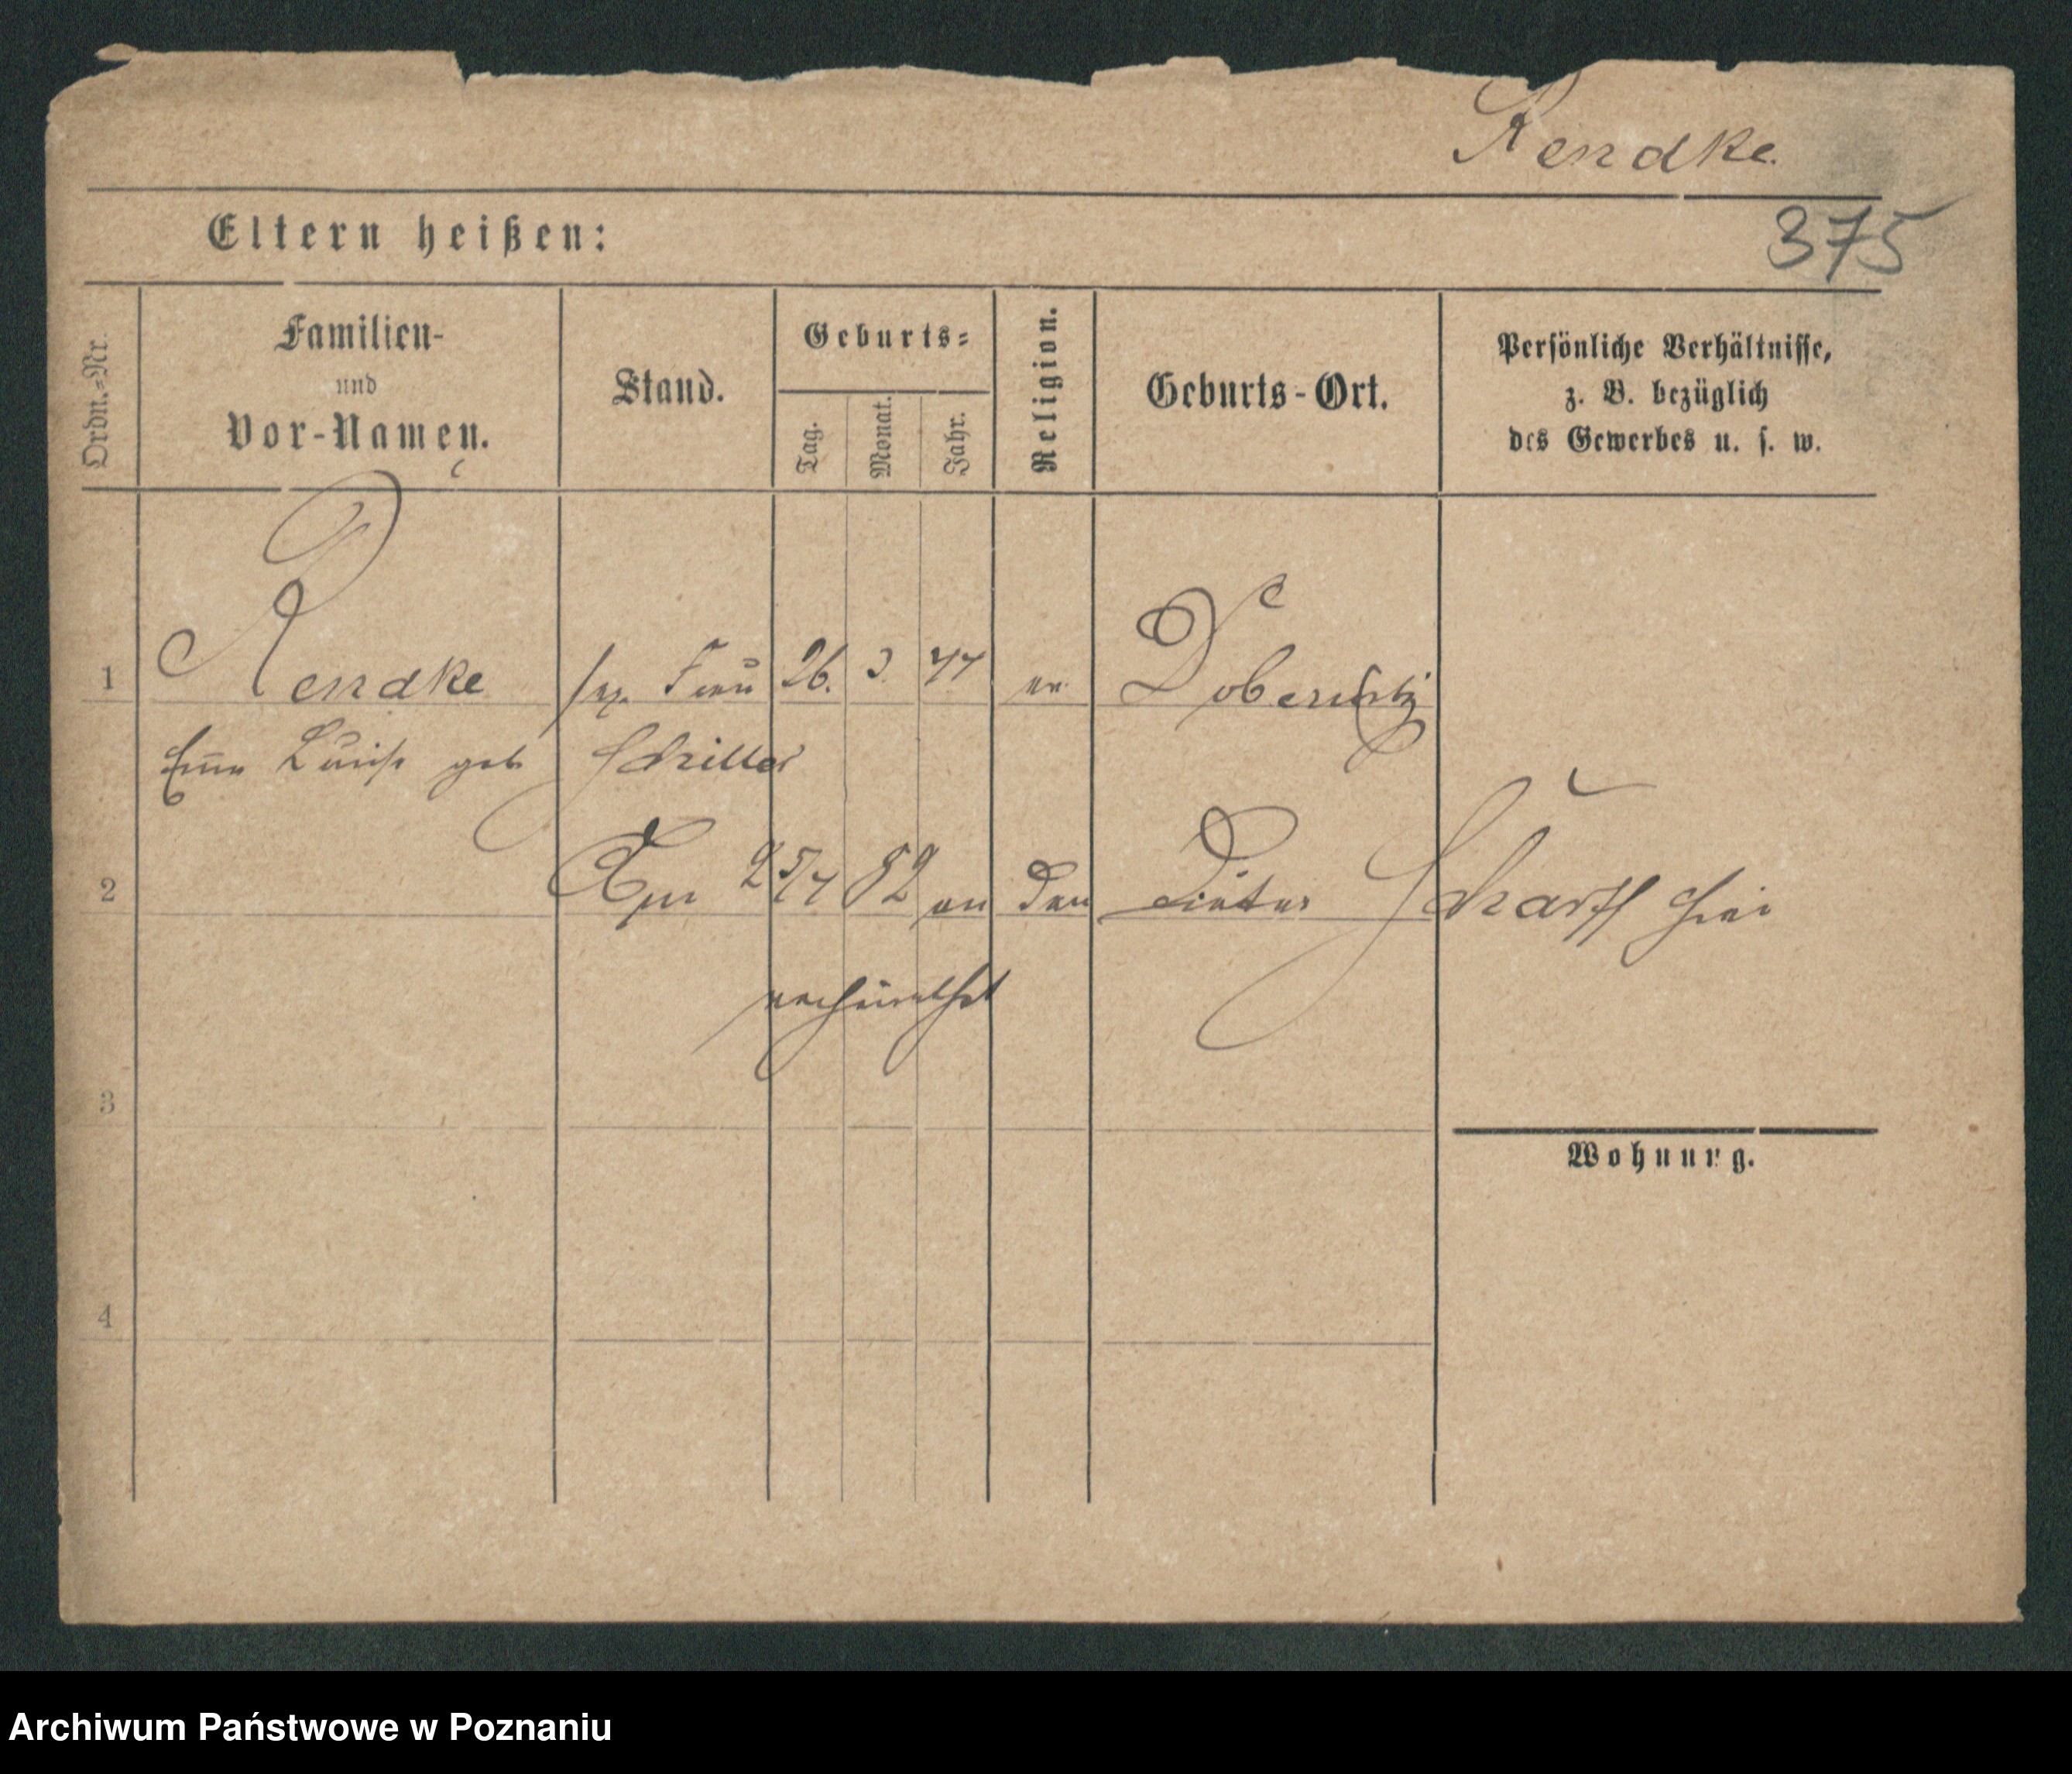 Rendke
375
Eltern heißen:
Ordn.=Nr.
Familien-
und
Vor-Namen.
Stand.
Geburts=
Tag.
Monat.
Jahr.
Religion.
Geburts-Ort.
Persönliche Verhältnisse,
z. B. bezüglich
des Gewerbes u. s. w.
1 Rendke sep. Frau 26. 3. 44 ev. Doberschütz
Luise geb Schiller
2 25/4 82 an den Scharff hier
verheirathet
3
Wohnung.
4
Archiwum Państwowe w Poznaniu